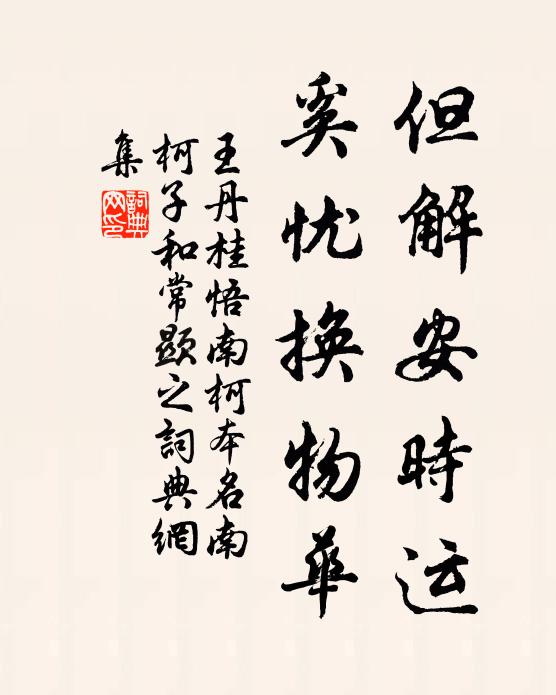 但解安時运
奚忧換物華
王丹桂悟南柯本名南
柯子和常顯之詞典網
集
詞典网印